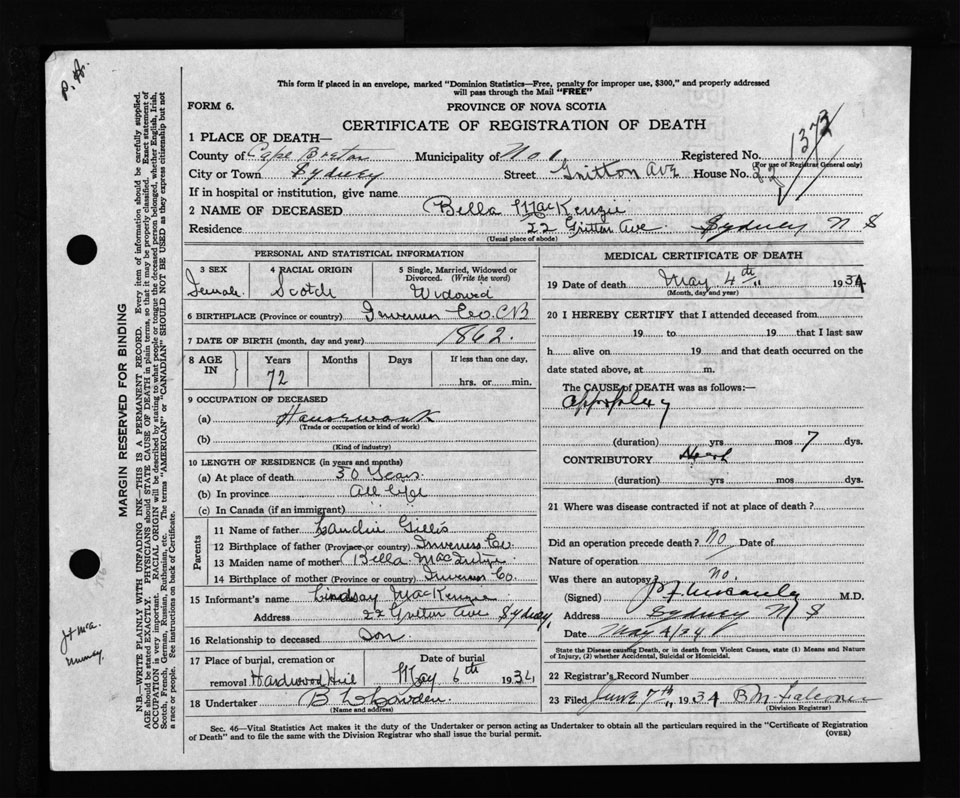 P. H.
This form if placed in an envelope, marked "Dominion Statistics—Free, penalty for improper use, $300," and properly addressed
will pass through the Mail "FREE"
FORM 6.
PROVINCE OF NOVA SCOTIA
CERTIFICATE OF REGISTRATION OF DEATH
1 PLACE OF DEATH—
County of Cape Breton Municipality of No 1 Registered No. 1373
(For use of Registrar General only)
City or Town Sydney Street Gritton Ave House No. 22
If in hospital or institution, give name
2 NAME OF DECEASED Bella MacKenzie
Residence 22 Gritton Ave Sydney N S
(Usual place of abode)
PERSONAL AND STATISTICAL INFORMATION
3 SEX 4 RACIAL ORIGIN 5 Single, Married, Widowed or
Divorced. (Write the word)
Female Scotch Widowed
6 BIRTHPLACE (Province or country) Inverness Co. CB
7 DATE OF BIRTH (month, day and year) 1862.
8 AGE IN Years Months Days If less than one day,
72 hrs. or min.
9 OCCUPATION OF DECEASED
(a) Housework
(Trade or occupation or kind of work)
(b)
(Kind of industry)
10 LENGTH OF RESIDENCE (in years and months)
(a) At place of death 30 Years.
(b) In province all life
(c) In Canada (if an immigrant)
Parents
11 Name of father Lauchie Gillis
12 Birthplace of father (Province or country) Inverness Co.
13 Maiden name of mother Bella
14 Birthplace of mother (Province or country) Inverness Co.
15 Informant's name Lindsay MacKenzie
Address 22 Gritton Ave Sydney,
16 Relationship to deceased Son.
17 Place of burial, cremation or Date of burial
removal Hardwood Hill May 6th 1934
18 Undertaker B
(Name and address)
MEDICAL CERTIFICATE OF DEATH
19 Date of death May 4th " 1934
(Month, day and year)
20 I HEREBY CERTIFY that I attended deceased from
19 to 19 that I last saw
h alive on 19 and that death occurred on the
date stated above, at m.
The CAUSE OF DEATH was as follows:—
Apoplexy
(duration) yrs mos 7 dys.
CONTRIBUTORY
(duration) yrs mos dys.
21 Where was disease contracted if not at place of death?
Did an operation precede death? No Date of
Nature of operation
Was there an autopsy? No.
(Signed) M.D.
Address Sydney N S
Date May 4/34
State the Disease causing Death, or in death from Violent Causes, state (1) Means and Nature
of Injury, (2) whether Accidental, Suicidal or Homicidal.
22 Registrar's Record Number
23 Filed June 7th, 1934 B M
(Division Registrar)
Sec. 46—Vital Statistics Act makes it the duty of the Undertaker or person acting as Undertaker to obtain all the particulars required in the "Certificate of Registration
of Death" and to file the same with the Division Registrar who shall issue the burial permit.
(OVER)
MARGIN RESERVED FOR BINDING
N.B.—WRITE PLAINLY WITH UNFADING INK—THIS IS A PERMANENT RECORD. Every item of information should be carefully supplied.
AGE should be stated EXACTLY. PHYSICIANS should STATE CAUSE OF DEATH in plain terms, so that it may be properly classified. Exact statement of
OCCUPATION is very important. RACIAL ORIGIN will be described by stating to what people or tongue the deceased person belonged, whether English, Irish,
Scotch, French, German, Russian, Ruthenian, etc. The terms "AMERICAN" or "CANADIAN" SHOULD NOT BE USED as they express citizenship but not
a race or people. See instructions on back of Certificate.